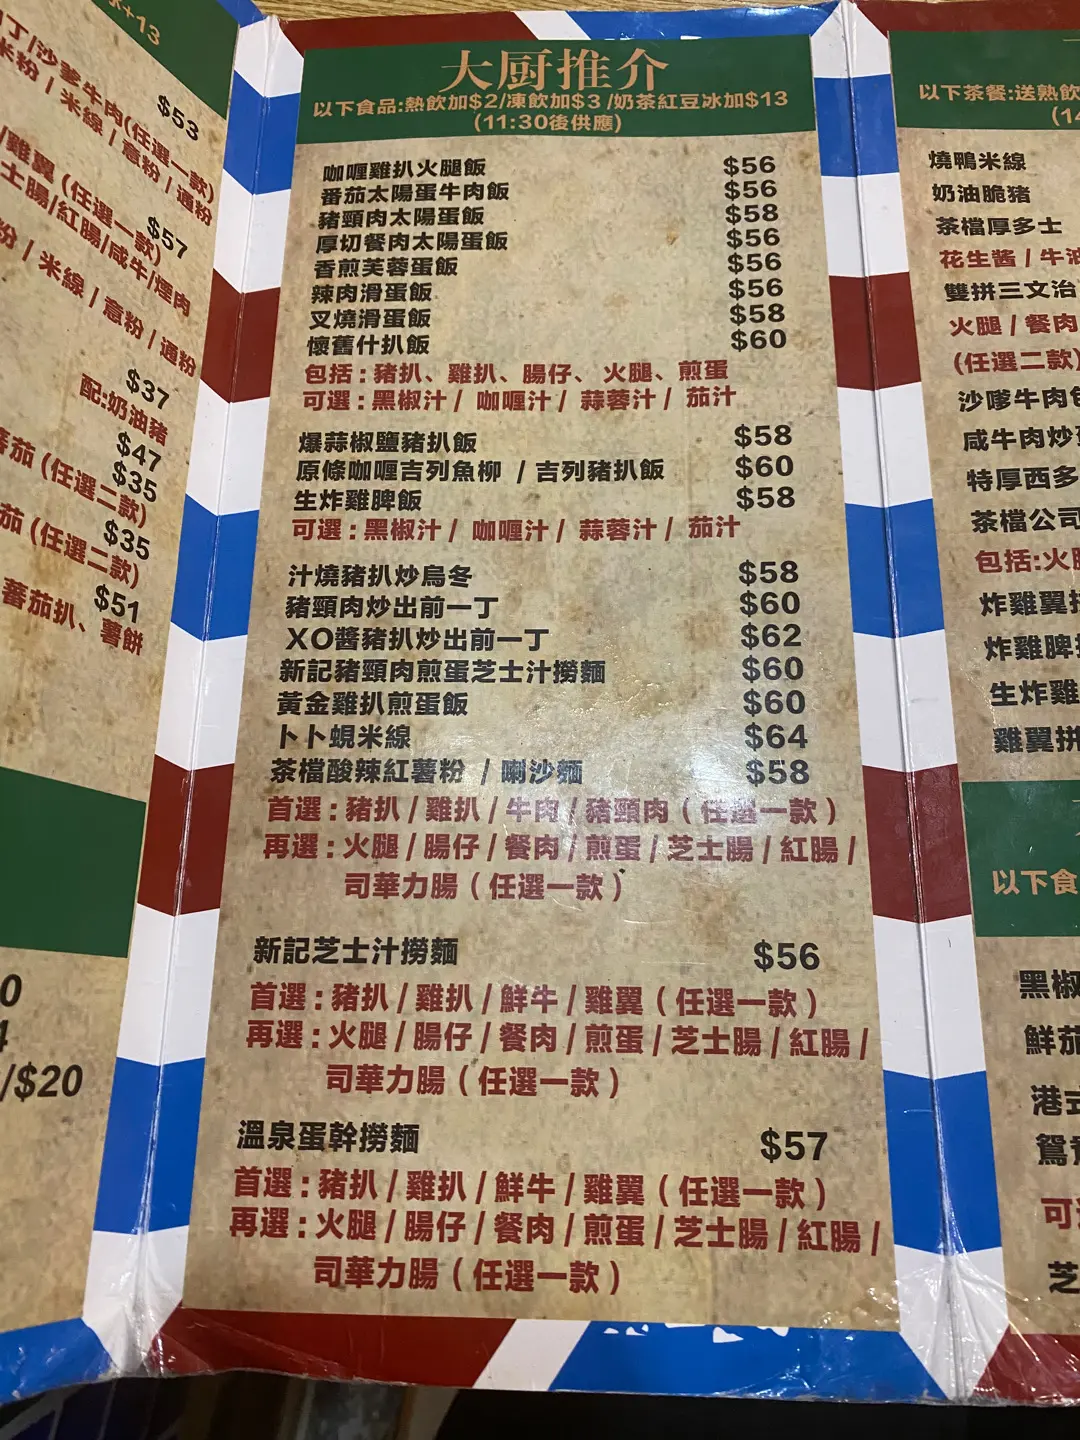 冰+13
丁/沙爹牛肉(任選一款)
$53
米粉 / 米線 / 意粉 / 通粉
/雞翼 (任選一款)
$57
士腸/紅腸/咸牛/煙肉
粉 / 米線 / 意粉 / 通粉
$37
配:奶油豬
$47
蕃茄 (任選二款)
$35
茄 (任選二款)
$35
$51
蕃茄扒、薯餅
/$20
大厨推介
以下食品:熱飲加$2/凍飲加$3 /奶茶紅豆冰加$13
(11:30後供應)
咖喱雞扒火腿飯 $56
番茄太陽蛋牛肉飯 $56
豬頸肉太陽蛋飯 $58
厚切餐肉太陽蛋飯 $56
香煎芙蓉蛋飯 $56
辣肉滑蛋飯 $56
叉燒滑蛋飯 $58
懷舊什扒飯 $60
包括 : 豬扒、雞扒、腸仔、火腿、煎蛋
可選 : 黑椒汁 / 咖喱汁 / 蒜蓉汁 / 茄汁
爆蒜椒鹽豬扒飯 $58
原條咖喱吉列魚柳 / 吉列豬扒飯 $60
生炸雞脾飯 $58
可選 : 黑椒汁 / 咖喱汁 / 蒜蓉汁 / 茄汁
汁燒豬扒炒烏冬 $58
豬頸肉炒出前一丁 $60
XO醬豬扒炒出前一丁 $62
新記豬頸肉煎蛋芝士汁撈麵 $60
黃金雞扒煎蛋飯 $60
卜卜蜆米線 $64
茶檔酸辣紅薯粉 / 喇沙麵 $58
首選 : 豬扒 / 雞扒 / 牛肉 / 豬頸肉 ( 任選一款 )
再選 : 火腿 / 腸仔 / 餐肉 / 煎蛋 / 芝士腸 / 紅腸 /
司華力腸 ( 任選一款 )
新記芝士汁撈麵 $56
首選 : 豬扒 / 雞扒 / 鮮牛 / 雞翼 ( 任選一款 )
再選 : 火腿 / 腸仔 / 餐肉 / 煎蛋 / 芝士腸 / 紅腸 /
司華力腸 ( 任選一款 )
溫泉蛋幹撈麵 $57
首選 : 豬扒 / 雞扒 / 鮮牛 / 雞翼 ( 任選一款 )
再選 : 火腿 / 腸仔 / 餐肉 / 煎蛋 / 芝士腸 / 紅腸 /
司華力腸 ( 任選一款 )
以下茶餐:送熱飲
(14
燒鴨米線
奶油脆豬
茶檔厚多士
花生酱 / 牛油
雙拼三文治
火腿 / 餐肉
(任選二款)
沙嗲牛肉包
咸牛肉炒蛋
特厚西多
茶檔公司
包括:火腿
炸雞翼拼
炸雞脾拼
生炸雞
雞翼拼
以下食
黑椒
鮮茄
港式
鴛鴦
可選
芝